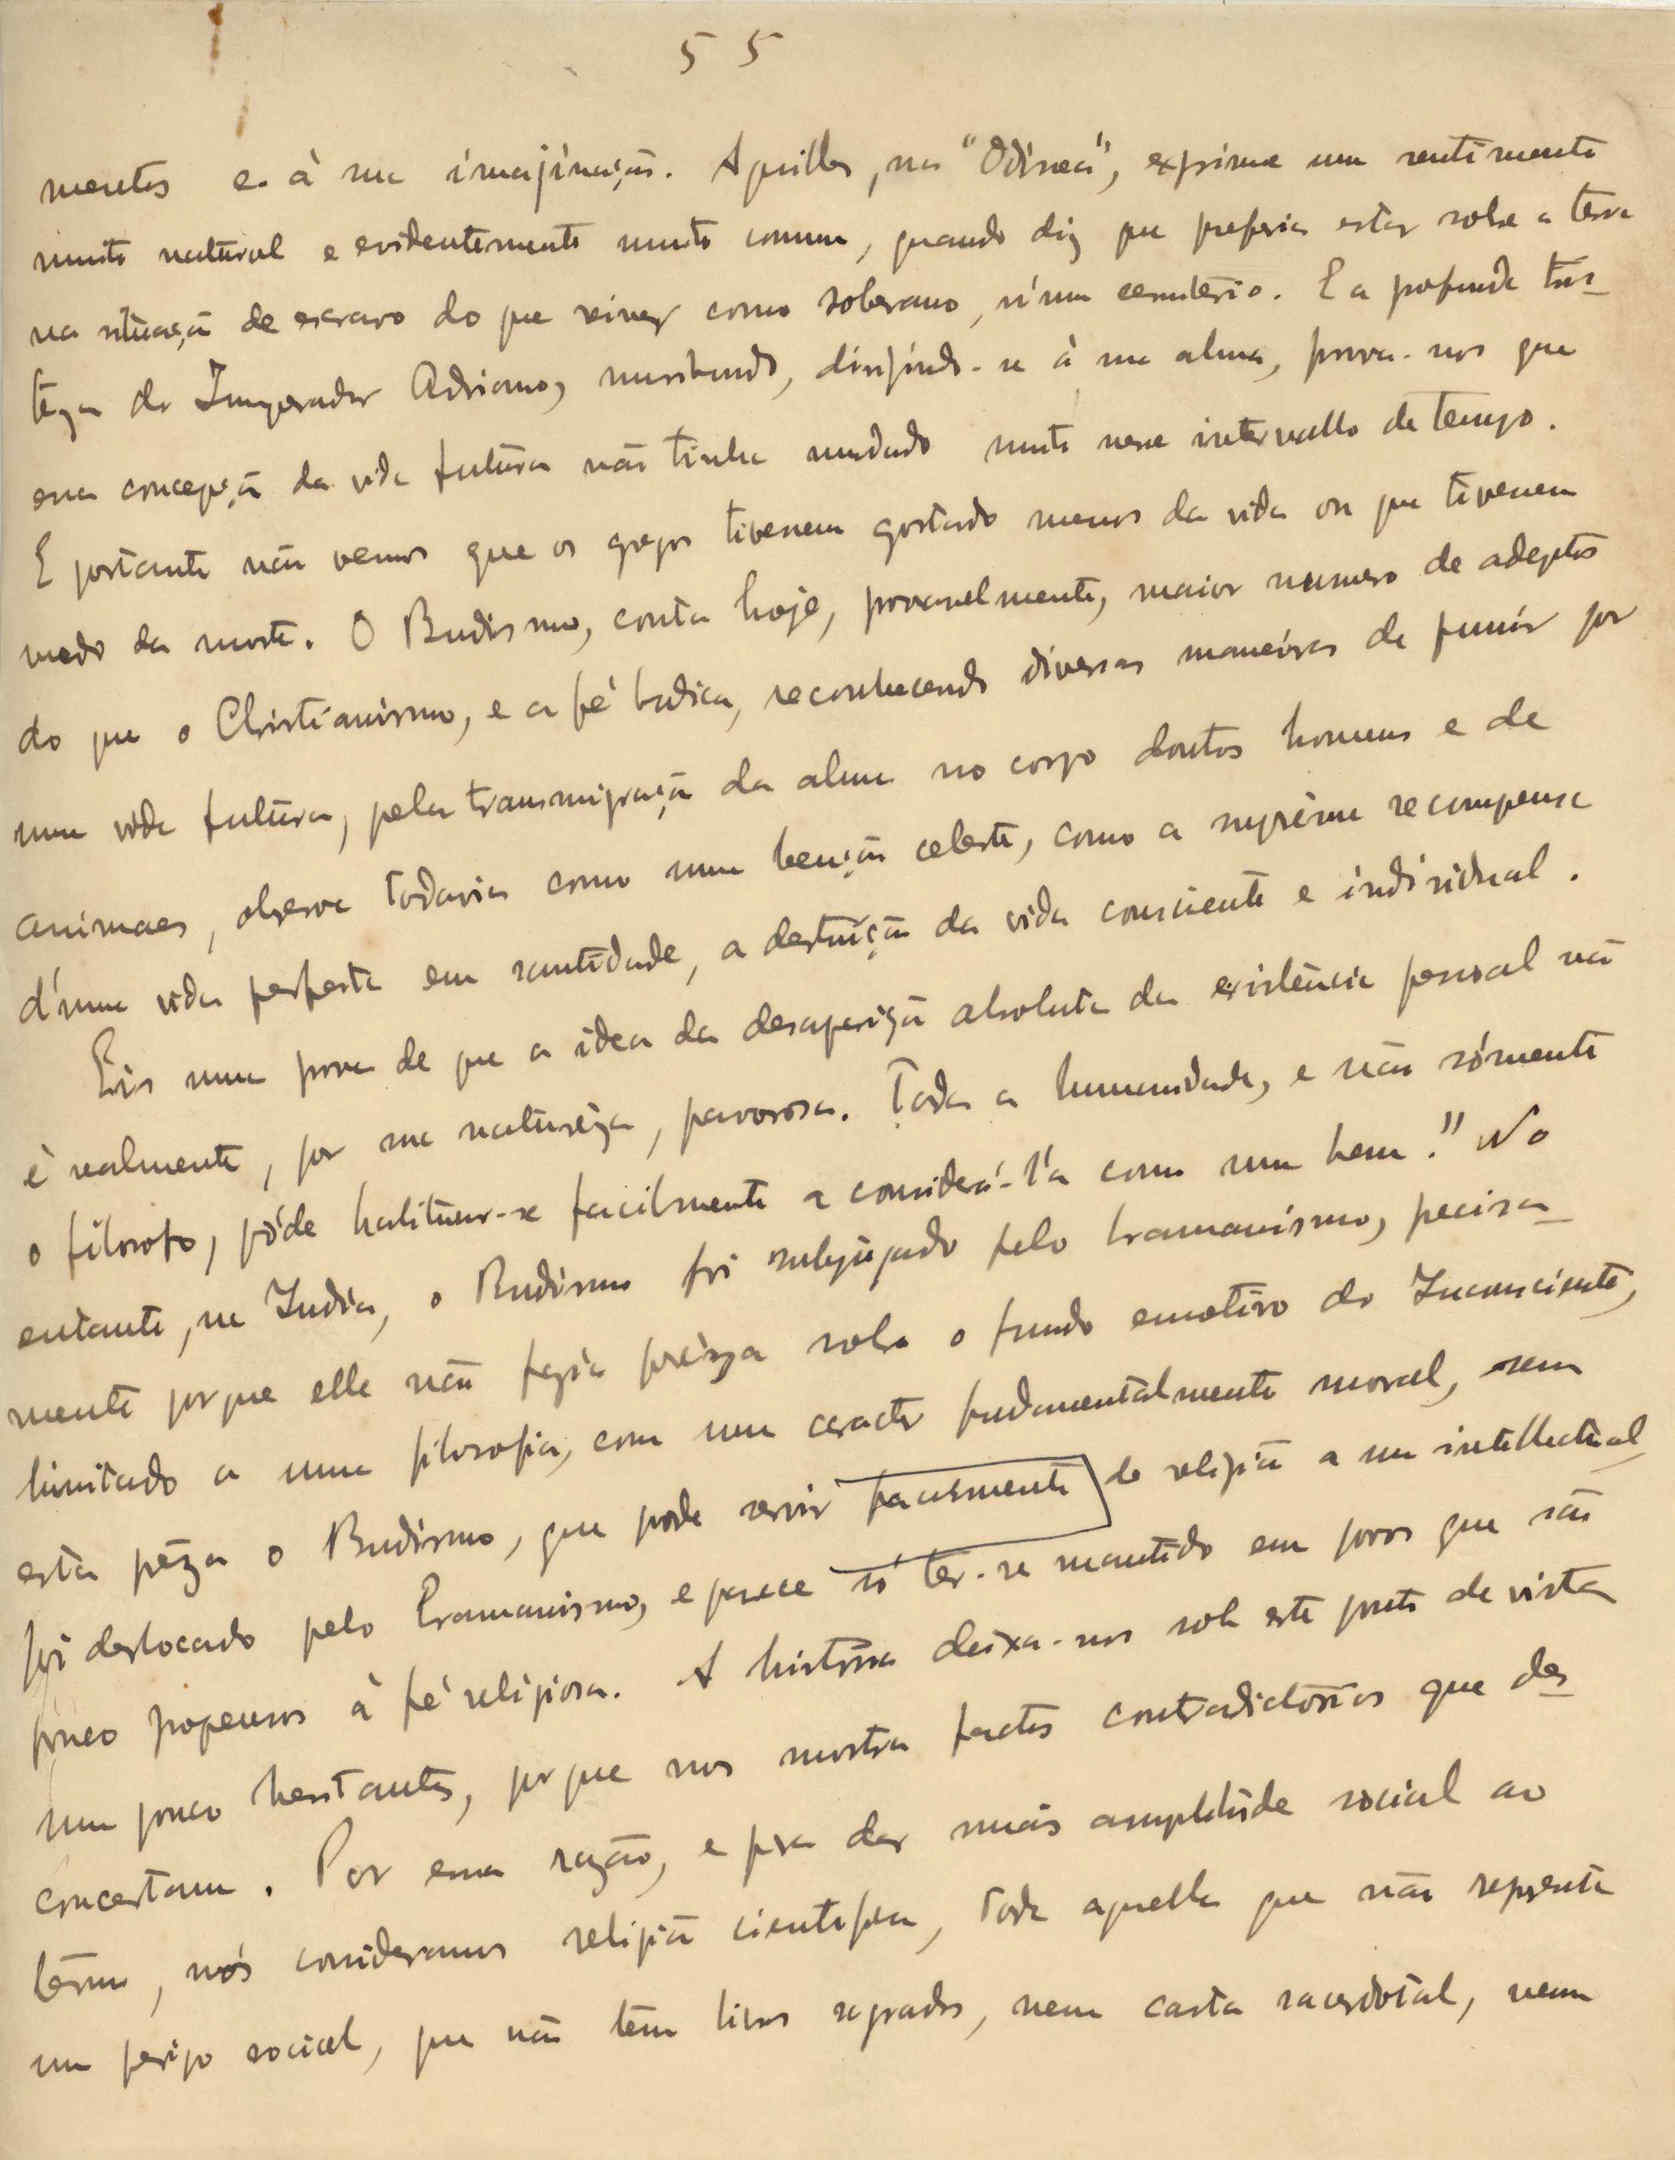 55
mentos e à sua imajinação. Aquilles, na "Odisea", exprime um sentimento
muito natural e evidentemente muito comum, quando diz que preferia estar sobre a terra
na situação de escravo do que viver como soberano, n'um cemitério. E a profunda tris-
teza do Imperador Adriano, moribundo, dirijindo-se à sua alma, prova-nos que
essa concepção da vida futura não tinha mudado muito nesse intervallo de tempo.
E portanto não vemos que os gregos tivessem gostado menos da vida ou que tivessem
medo da morte. O Budismo, conta hoje, provavelmente, maior numero de adeptos
do que o Christianismo, e a fé budica, reconhecendo diversas maneiras de punir por
uma vida futura, pela transmigração da alma no corpo doutos homens e de
animaes, observa todavia como uma benção celeste, como a suprêma recompensa
d'uma vida perfeita em santidade, a destruição da vida consciente e individual.
Eis uma prova de que a idea da desaparição absoluta da existência pessoal não
é realmente, por sua naturêza, pavorosa. Toda a humanidade, e não sómente
o filosofo, póde habituar-se facilmente a considerá-l'a como um bem." No
entanto, na India, o Budismo foi subjugado pelo bramanismo, precisa-
mente porque elle não fazia prêza sobre o fundo emotivo do Inconsciente,
limitado a uma filosofia, com um caracter fundamentalmente moral, sem
esta prêza o Budismo, que pode servir facilmente de religião a um intellectual,
foi deslocado pelo Bramanismo, e parece só ter-se mantido em povos que são
pouco propensos à fé religiosa. A história deixa-nos sob este ponto de vista
um pouco hesitantes, porque nos mostra factos contradictórios que des-
concertam. Por essa razão, e pra dar mais amplitude social ao
têrmo, nós consideramos religião cientifica, toda aquella que não represente
um perigo social, que não têm livros sagrados, nem casta sacerdotal, nem